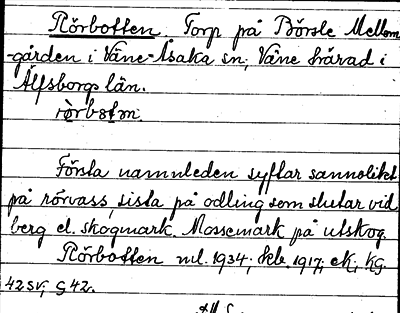 Rörbotten. Torp på Börsle Mellom
-gården i Väne-Åsaka sn, Väne härad i
Älfsborgs län.
rò̀rbòtn
Första namnleden syftar sannolikt
på rörvass, sista på odling som slutar vid
berg el. skogmark. Mossemark på utskog.
Rörbotten ml. 1934; kb. 1917; ek; KG.
42 SV; G 42.